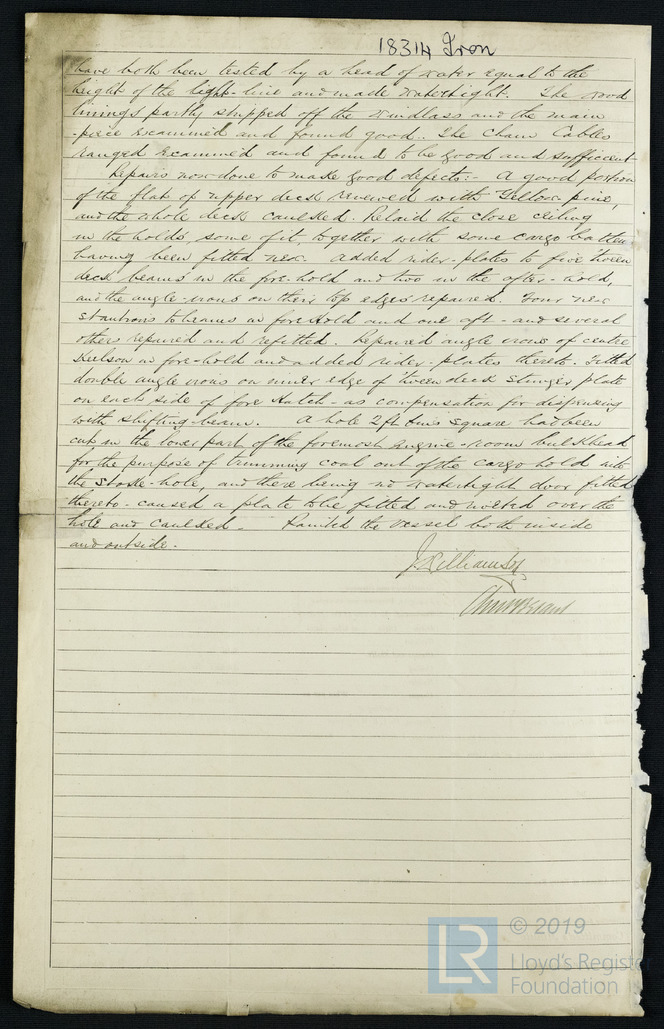 18314 Iron
have both been tested by a head of water equal to the
height of the light-line and made watertight. The wood
linings partly stripped off the windlass and the main
-piece examined and found good. The Chain Cables
ranged examined and found to be good and sufficient
Repairs now done to made good defects:- A good portion
of the flat of upper deck renewed with Yellow pine,
and the whole deck caulked. Relaid the close ceiling
in the holds, some of it, together with some cargo batten
having been fitted new. Added rider-plates to five tween
deck beams in the fore-hold and two in the after-hold,
and the angle-irons on their top edges repaired. Four new
stantions to beams in fore Hold and one aft - and several
others repaired and refitted. Repaired angle irons of centre
Keelson in fore-hold and added rider-plates thereto. Fitted
double angle irons on inner edge of tween deck stringer plate
on each side of fore Hatch - as compensation for dispensing
with shifting-beam. A hole 2 ft square had been
cut in the lower part of the foremost engine-room bulkhead
for the purpose of trimming coal out of the cargo hold into
the stoke-hole, and there being no watertight door fitted
thereto - caused a plate to be fitted and riveted over the
hole and caulked. Painted the vessel both inside
and outside.
LR
© 2019
Lloyd's Register
Foundation